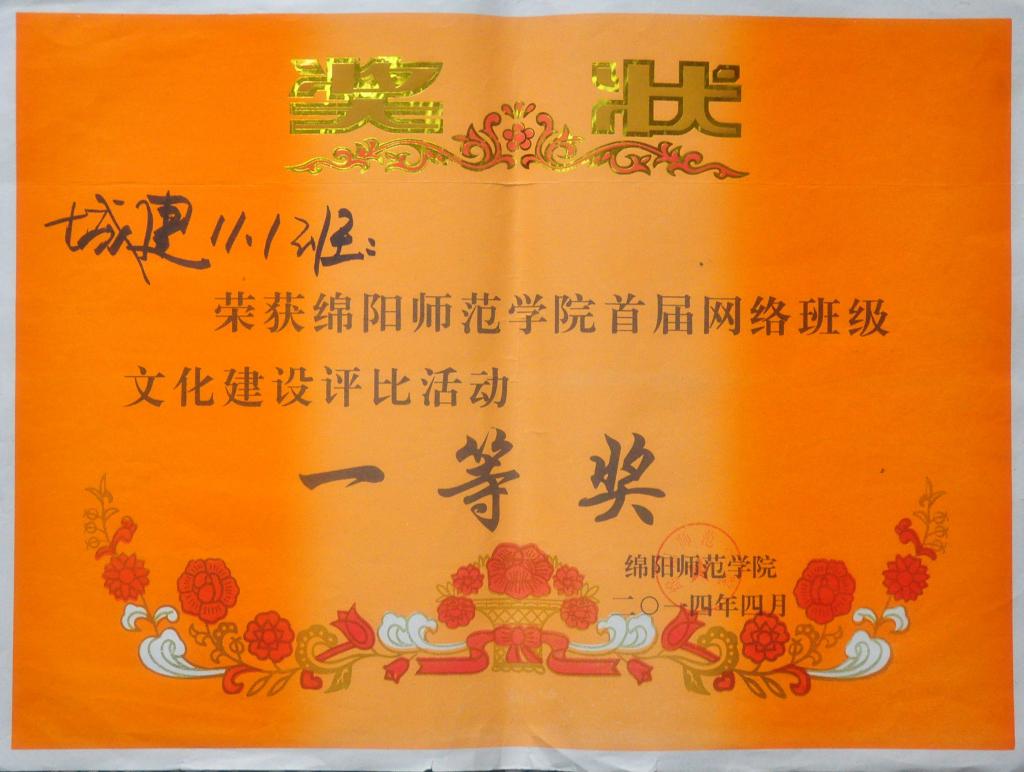 奖状
城建11.1班:
荣获绵阳师范学院首届网络班级
文化建设评比活动
一等奖
绵阳师范学院
二〇一四年四月